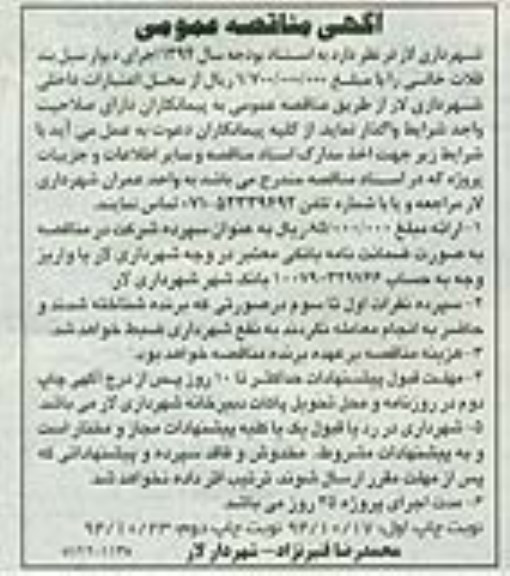 آگهی مناقصه عمومی
شهرداری لار در نظر دارد به استناد بودجه سال ۱۳۹۴ اجرای دیوار سیل بند
قلات خانی را با مبلغ ۱/۷۰۰/۰۰۰/۰۰۰ ریال از محل اعتبارات داخلی
شهرداری لار از طریق مناقصه عمومی به پیمانکاران دارای صلاحیت
واجد شرایط واگذار نماید. از کلیه پیمانکاران دعوت به عمل می آید با
شرایط زیر جهت اخذ مدارک اسناد مناقصه و سایر اطلاعات و جزییات
پروژه که در اسناد مناقصه مندرج می باشد به واحد عمران شهرداری
لار مراجعه و یا با شماره تلفن تماس نمایند.
۱- ارائه مبلغ ۸۵/۰۰۰/۰۰۰ ریال به عنوان سپرده شرکت در مناقصه
به صورت ضمانت نامه بانکی معتبر در وجه شهرداری لار یا واریز
وجه به حساب بانک شهر شهرداری لار
۲- سپرده نفرات اول تا سوم درصورتی که برنده شناخته شدند و
حاضر به انجام معامله نگردند به نفع شهرداری ضبط خواهد شد.
۳- هزینه مناقصه بر عهده برنده مناقصه خواهد بود.
۴- مهلت قبول پیشنهادات حداکثر تا ۱۰ روز پس از درج آگهی چاپ
دوم در روزنامه و محل تحویل پاکات دبیرخانه شهرداری لار می باشد.
۵- شهرداری در رد یا قبول یک یا کلیه پیشنهادات مجاز و مختار است
و به پیشنهادات مشروط، مخدوش و فاقد سپرده و پیشنهاداتی که
پس از مهلت مقرر ارسال شوند، ترتیب اثر داده نخواهد شد.
۶- مدت اجرای پروژه ۴۵ روز می باشد.
نوبت چاپ اول: ۹۴/۱۰/۱۷ نوبت چاپ دوم: ۹۴/۱۰/۲۳
محمدرضا قنبرنژاد – شهردار لار